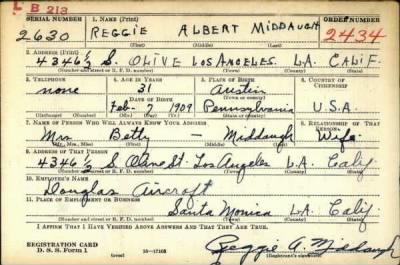 L B 213
SERIAL NUMBER 1. NAME (Print) ORDER NUMBER
2630 REGGIE ALBERT MIDDAUGH 2434
(First) (Middle) (Last)
2. ADDRESS (Print)
4346½ S. OLIVE LOS ANGELES. L.A. CALIF.
(Number and street or R. F. D. number) (Town) (County) (State)
3. TELEPHONE 4. AGE IN YEARS 5. PLACE OF BIRTH 6. COUNTRY OF CITIZENSHIP
none 31 Austin
DATE OF BIRTH (Town or county)
Feb - 7 1909 Pennsylvania U.S.A.
(Exchange) (Number) (Mo.) (Day) (Yr.) (State or country)
7. NAME OF PERSON WHO WILL ALWAYS KNOW YOUR ADDRESS 8. RELATIONSHIP OF THAT PERSON
Mrs Betty — Middaugh Wife
(Mr., Mrs., Miss) (First) (Middle) (Last)
9. ADDRESS OF THAT PERSON
4346½ S Olive St. Los Angeles L.A. Calif
(Number and street or R. F. D. number) (Town) (County) (State)
10. EMPLOYER'S NAME
Douglas Aircraft
11. PLACE OF EMPLOYMENT OR BUSINESS
Santa Monica L.A. Calif.
(Number and street or R. F. D. number) (Town) (County) (State)
I AFFIRM THAT I HAVE VERIFIED ABOVE ANSWERS AND THAT THEY ARE TRUE.
REGISTRATION CARD
D. S. S. Form 1 (over) 16—17105 Reggie A. Middaugh